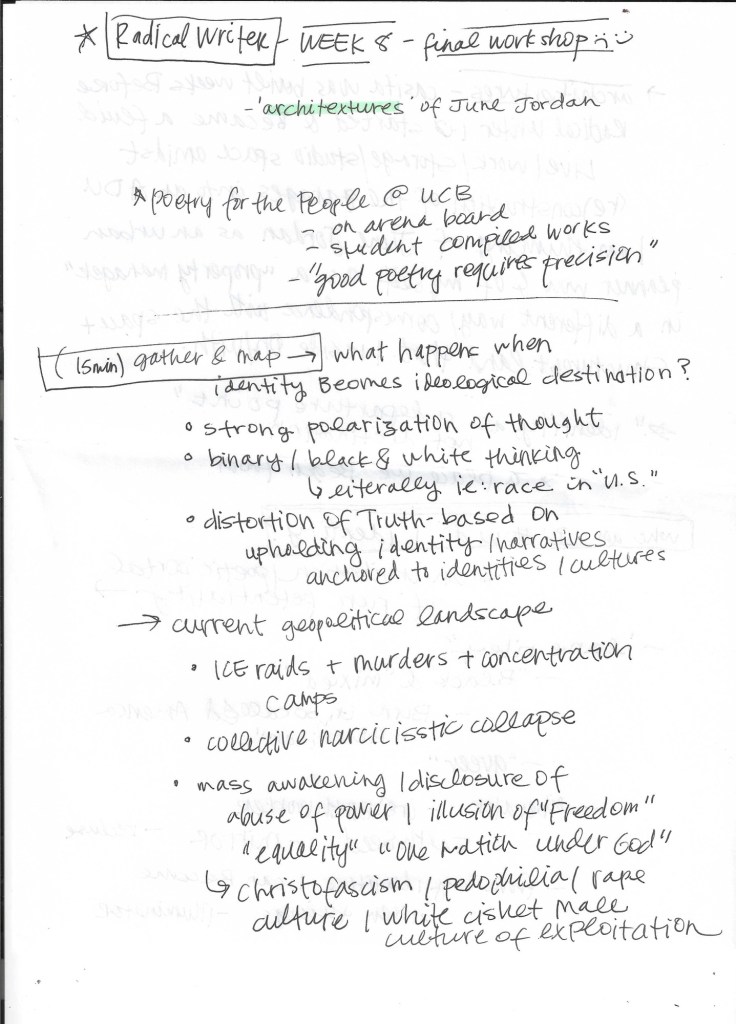 * Radical Writer - WEEK 8 - final workshop :( :)
- 'architextures' of June Jordan
* poetry for the People @ UCB
- on arena board
- student compiled works
- "good poetry requires precision"
(15min) gather & map → what happens when
identity Becomes ideological destination?
• strong polarization of thought
• binary / black & white thinking
↳ literally ie: race in "U.S."
• distortion of Truth-based on
upholding identity/narratives
anchored to identities / cultures
→ current geopolitical landscape
• ICE raids + murders + concentration
camps
• collective narcicisstic collapse
• mass awakening / disclosure of
abuse of power / illusion of "Freedom"
"equality" "One Nation under God"
↳ christofascism / pedophilia / rape
culture / white cishet male
culture of exploitation